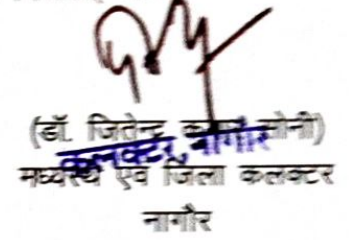 (डॉ. जितेन्द्र कुमार सोनी)
कलक्टर, नागौर
मध्यस्थ एवं जिला कलक्टर
नागौर